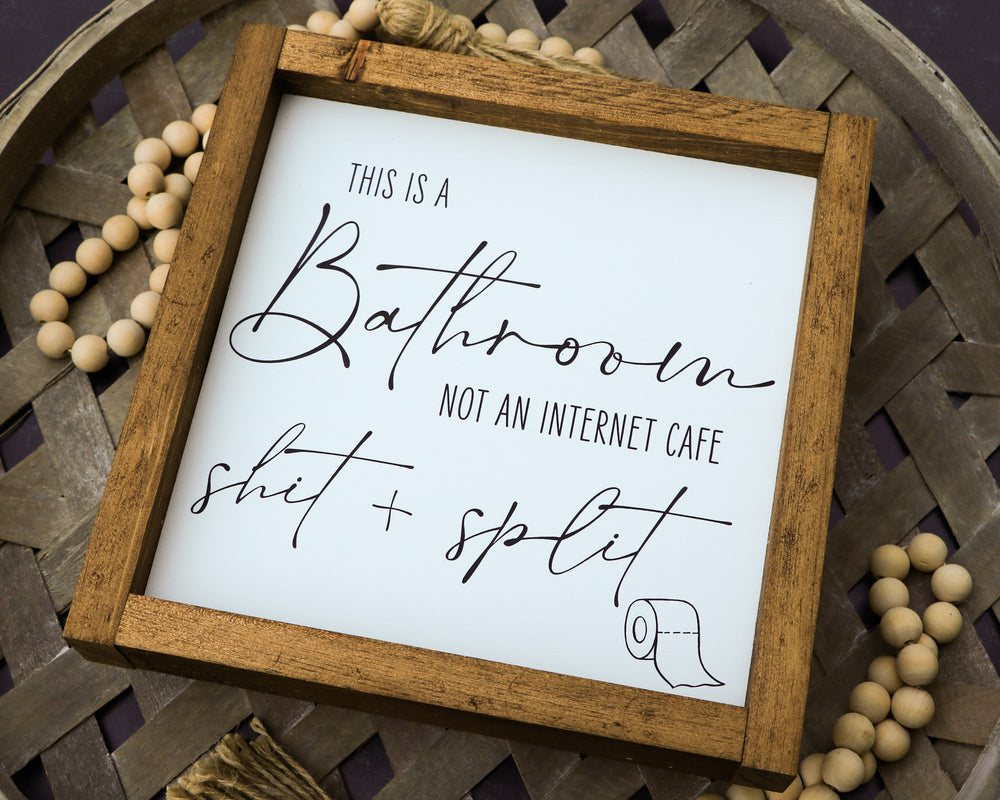 THIS IS A
Bathroom
NOT AN INTERNET CAFE
shit + split